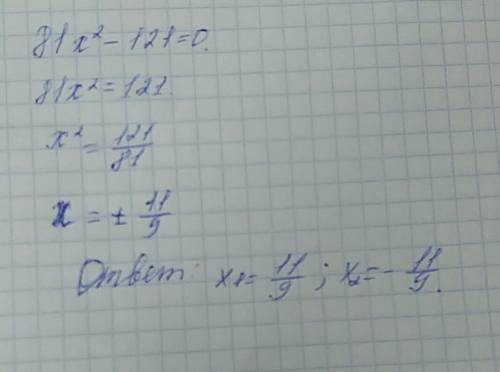 81x² - 121 = 0.
81x² = 121.
x² = 121/81
x = ± 11/9
Ответ: x₁ = 11/9 ; x₂ = - 11/9.